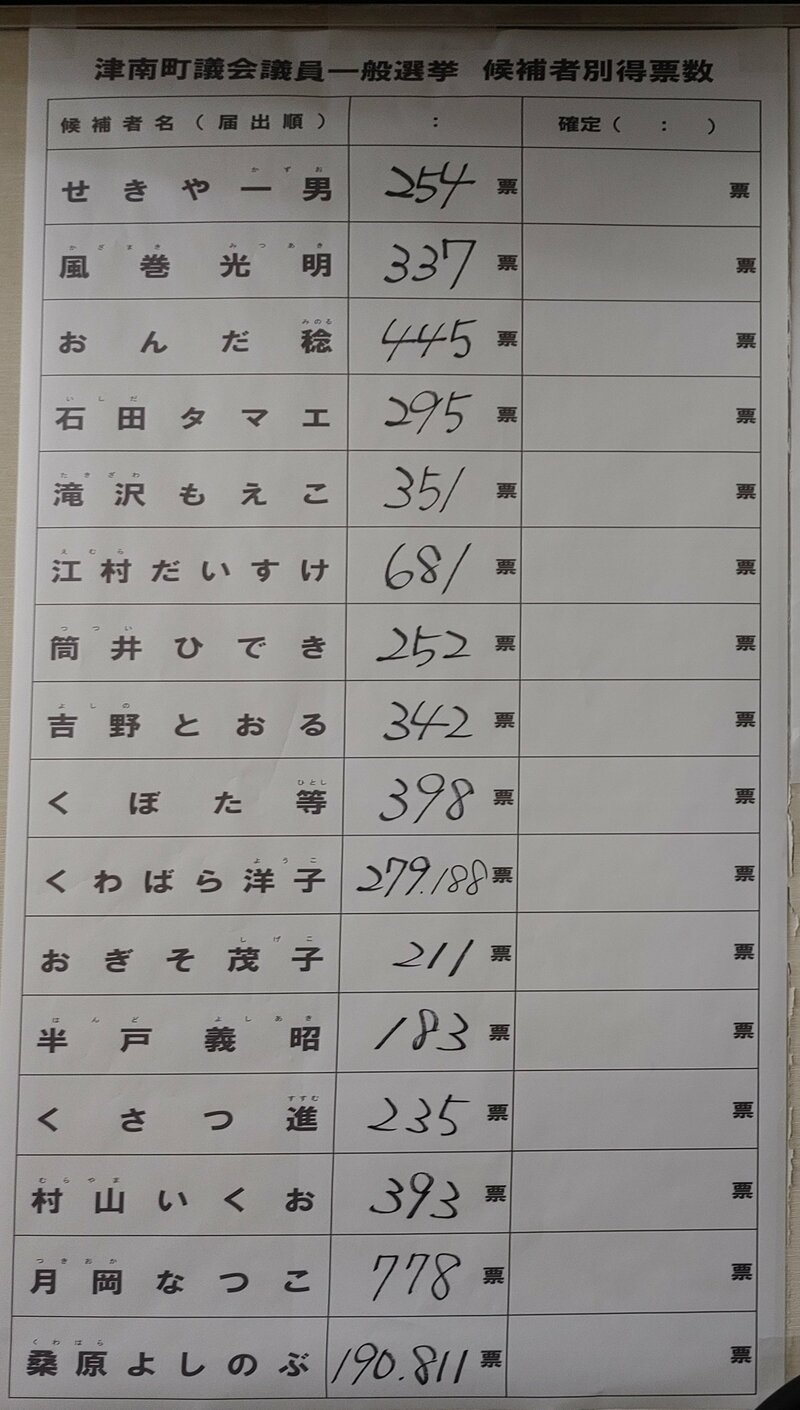 津南町議会議員一般選挙 候補者別得票数
候補者名(届出順) : 確定( : )
せきや一男 かずお 254票 票
風巻光明 かざまき みつあき 337票 票
おんだ稔 みのる 445票 票
石田タマエ いしだ 295票 票
滝沢もえこ たきざわ 351票 票
江村だいすけ えむら 681票 票
筒井ひでき つつい 252票 票
吉野とおる よしの 342票 票
くぼた等 ひとし 398票 票
くわばら洋子 ようこ 279.188票 票
おぎそ茂子 しげこ 211票 票
半戸義昭 はんど よしあき 183票 票
くさつ進 すすむ 235票 票
村山いくお むらやま 393票 票
月岡なつこ つきおか 778票 票
桑原よしのぶ くわはら 190.811票 票